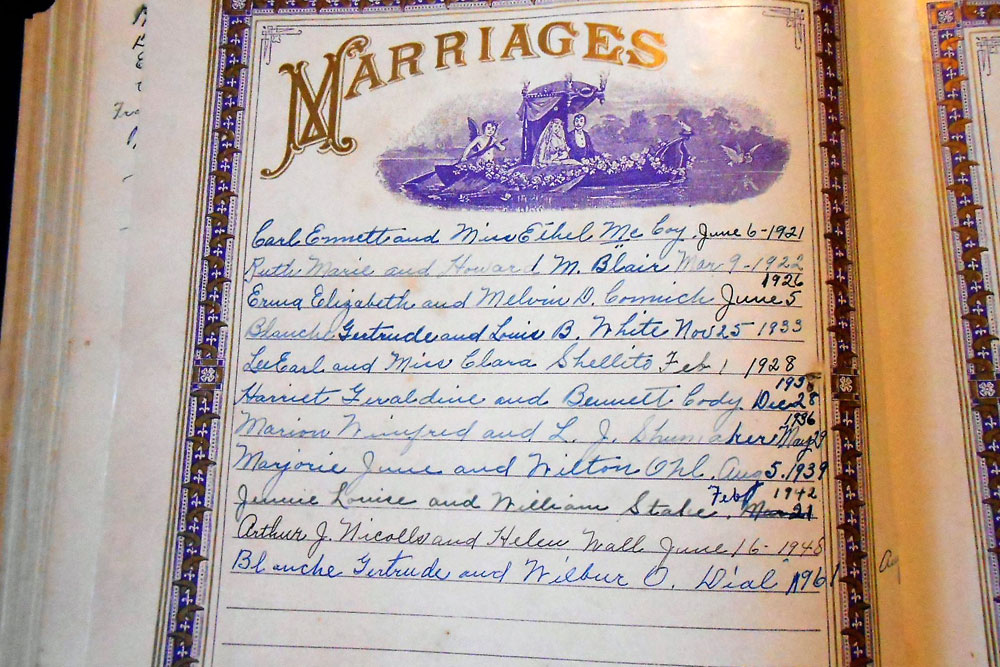 MARRIAGES
Carl Emmett and Miss Ethel Mc Coy June 6-1921
Ruth Marie and Howard M. Blair Mar 9-1922
1926
Erma Elizabeth and Melvin D. Cormick June 5
Blanche Gertrude and Louis B. White Nov 25 1933
Lee Earl and Miss Clara Shellito Feb 1 1928
Harriet Geraldine and Bennett Cody Dec 28
1936
Marion Winfred and L. J. Shumaker May 29
Marjorie June and Wilton Ohl. Aug 5. 1939
Feb 1942
Jennie Louise and William Stake. Mar 21
Arthur J. Nicolls and Helen Wall June 16-1945
Blanche Gertrude and Wilbur O. Dial 1961